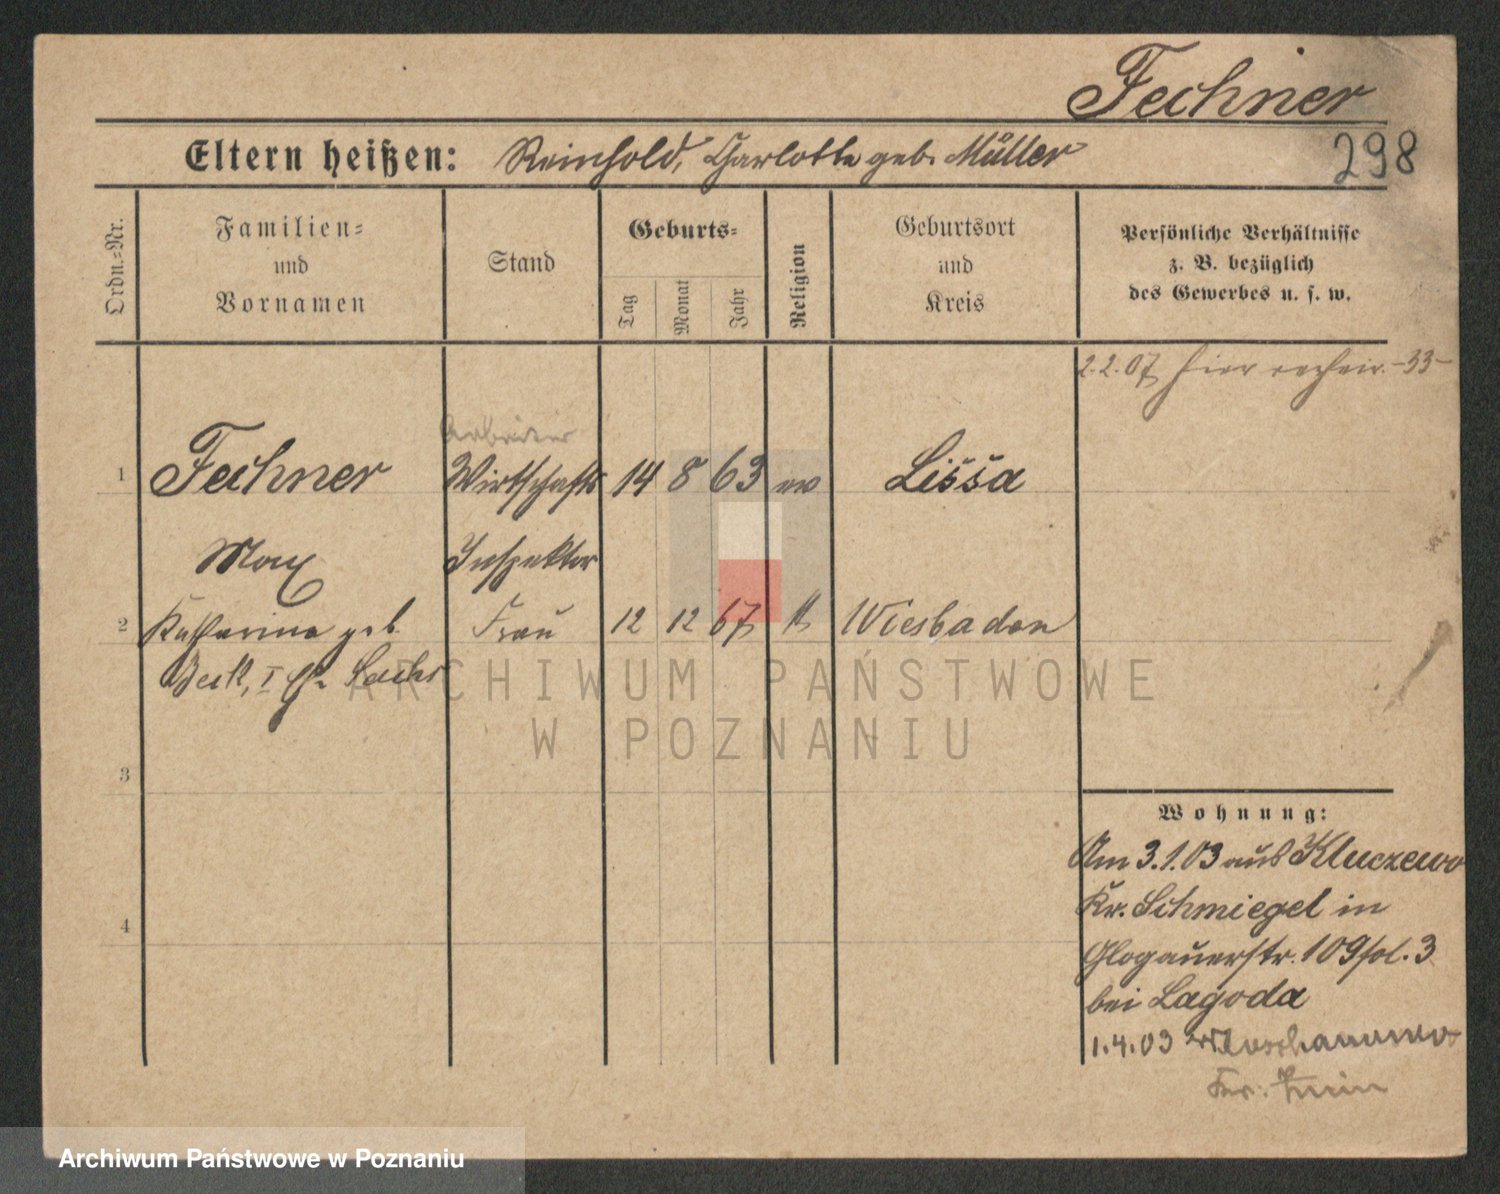 Fechner
298
Eltern heißen: Reinhold, Charlotte geb. Müller
Ordn.-Nr.
Familien-
und
Vornamen
Stand
Geburts-
Tag
Monat
Jahr
Religion
Geburtsort
und
Kreis
Persönliche Verhältnisse
z. B. bezüglich
des Gewerbes u. s. w.
2.2.07 hier -33-
Arbeiter
1 Fechner Wirtschafts 14 8 63 ev Lissa
Max Inspektor
2 Katharina geb. Frau 12 12 67 k Wiesbaden
Beck, I Sachs
3
4
Wohnung:
Am 3.1.03 aus Kluczewo
Kr. Schmiegel in
Glogauerstr. 109 fol. 3
bei Lagoda
1.4.03
Kr. Znin
ARCHIWUM PAŃSTWOWE
W POZNANIU
Archiwum Państwowe w Poznaniu